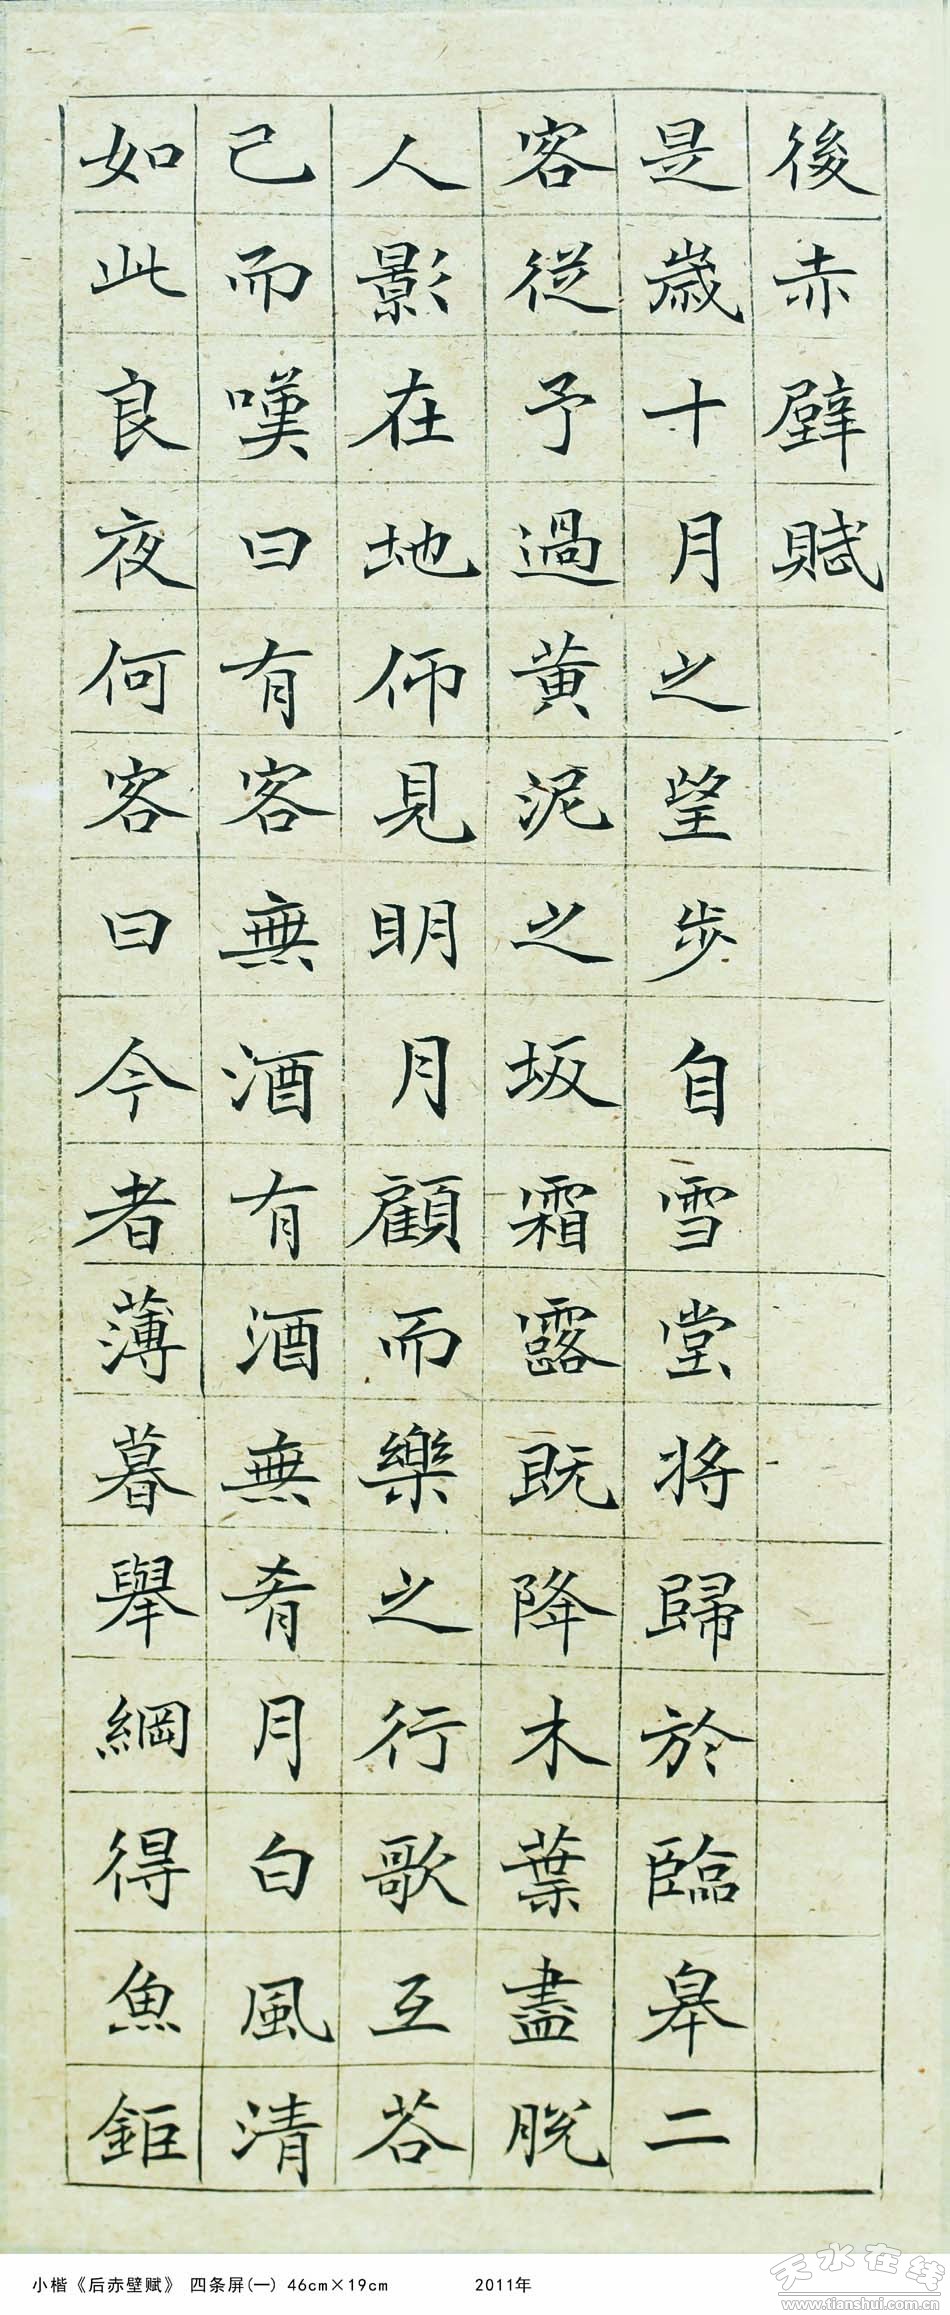 後赤壁賦
是歲十月之望步自雪堂將歸於臨皋二
客從予過黃泥之坂霜露既降木葉盡脫
人影在地仰見明月顧而樂之行歌互荅
已而嘆曰有客無酒有酒無肴月白風清
如此良夜何客曰今者薄暮舉網得魚鉅
小楷《后赤壁赋》 四条屏(一) 46cm×19cm 2011年
天水在线
www.tianshui.com.cn